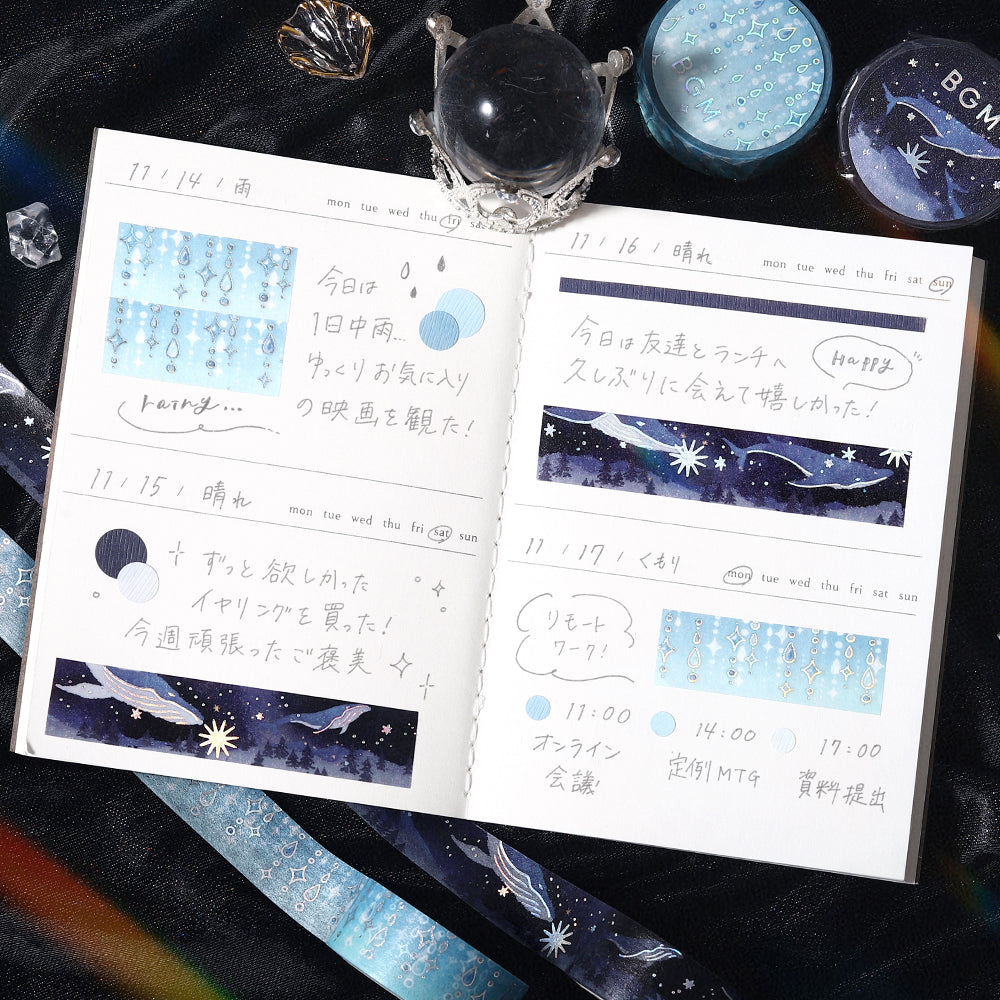 BGM
BGM
11 / 14 / 雨
mon tue wed thu fri sat
今日は
1日中雨…
ゆっくりお気に入り
の映画を観た!
rainy...
11 / 15 / 晴れ
mon tue wed thu fri sat sun
ずっと欲しかった
イヤリングを買った!
今週頑張ったご褒美
11 / 16 / 晴れ
mon tue wed thu fri sat sun
今日は友達とランチへ
久しぶりに会えて嬉しかった!
Happy
11 / 17 / くもり
mon tue wed thu fri sat sun
リモート
ワーク!
11:00
オンライン
会議
14:00
定例MTG
17:00
資料提出